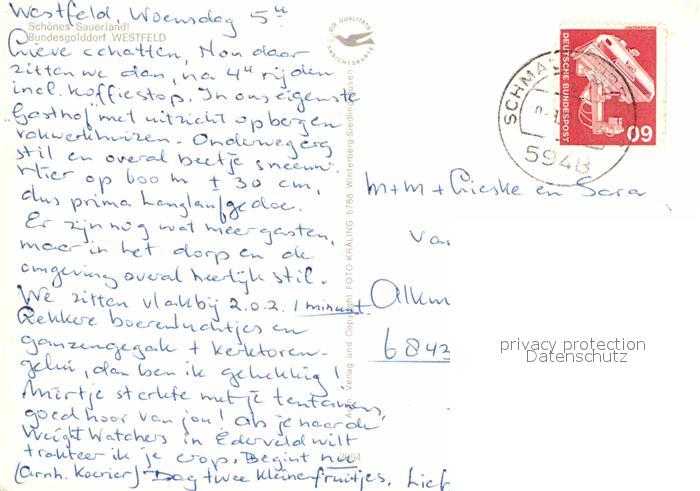 Westfeld, Woensdag 5u
Schönes Sauerland!
Bundesgolddorf WESTFELD
Lieve schatten, Nou daar
zitten we dan, na 4u rijden
incl. koffiestop. In ons eigenste
"Gasthof" met uitzicht op bergen
vakwerkhuizen. Onderweg erg
stil en overal beetje sneeuw.
Hier op 800 m ± 30 cm,
dus prima Langlaufgedoe.
Er zijn nog wat meer gasten,
maar in het dorp en de
omgeving overal heerlijk stil.
We zitten vlakbij z.o.z. 1 minuut
Lekkere boerenluchtjes en
ganzengegak + kerktoren-
gelui, dan ben ik gelukkig!
Mirtje sterkte met je tentamens,
goed hoor van jou! Als je naar de
Weight Watchers in Ederveld wilt
trakteer ik je erop. Begint nu
(Arnh. Koerier) Dag twee kleine fruitjes. Lief
DIE QUALITÄTS
ANSICHTSKARTE
Verlag und Copyright FOTO-KRALING 5788 Winterberg-Siedlinghausen
DEUTSCHE BUNDESPOST
60
SCHMA
5948
M+M+Lieske en Sara
Va
Alkm
6842
privacy protection
Datenschutz